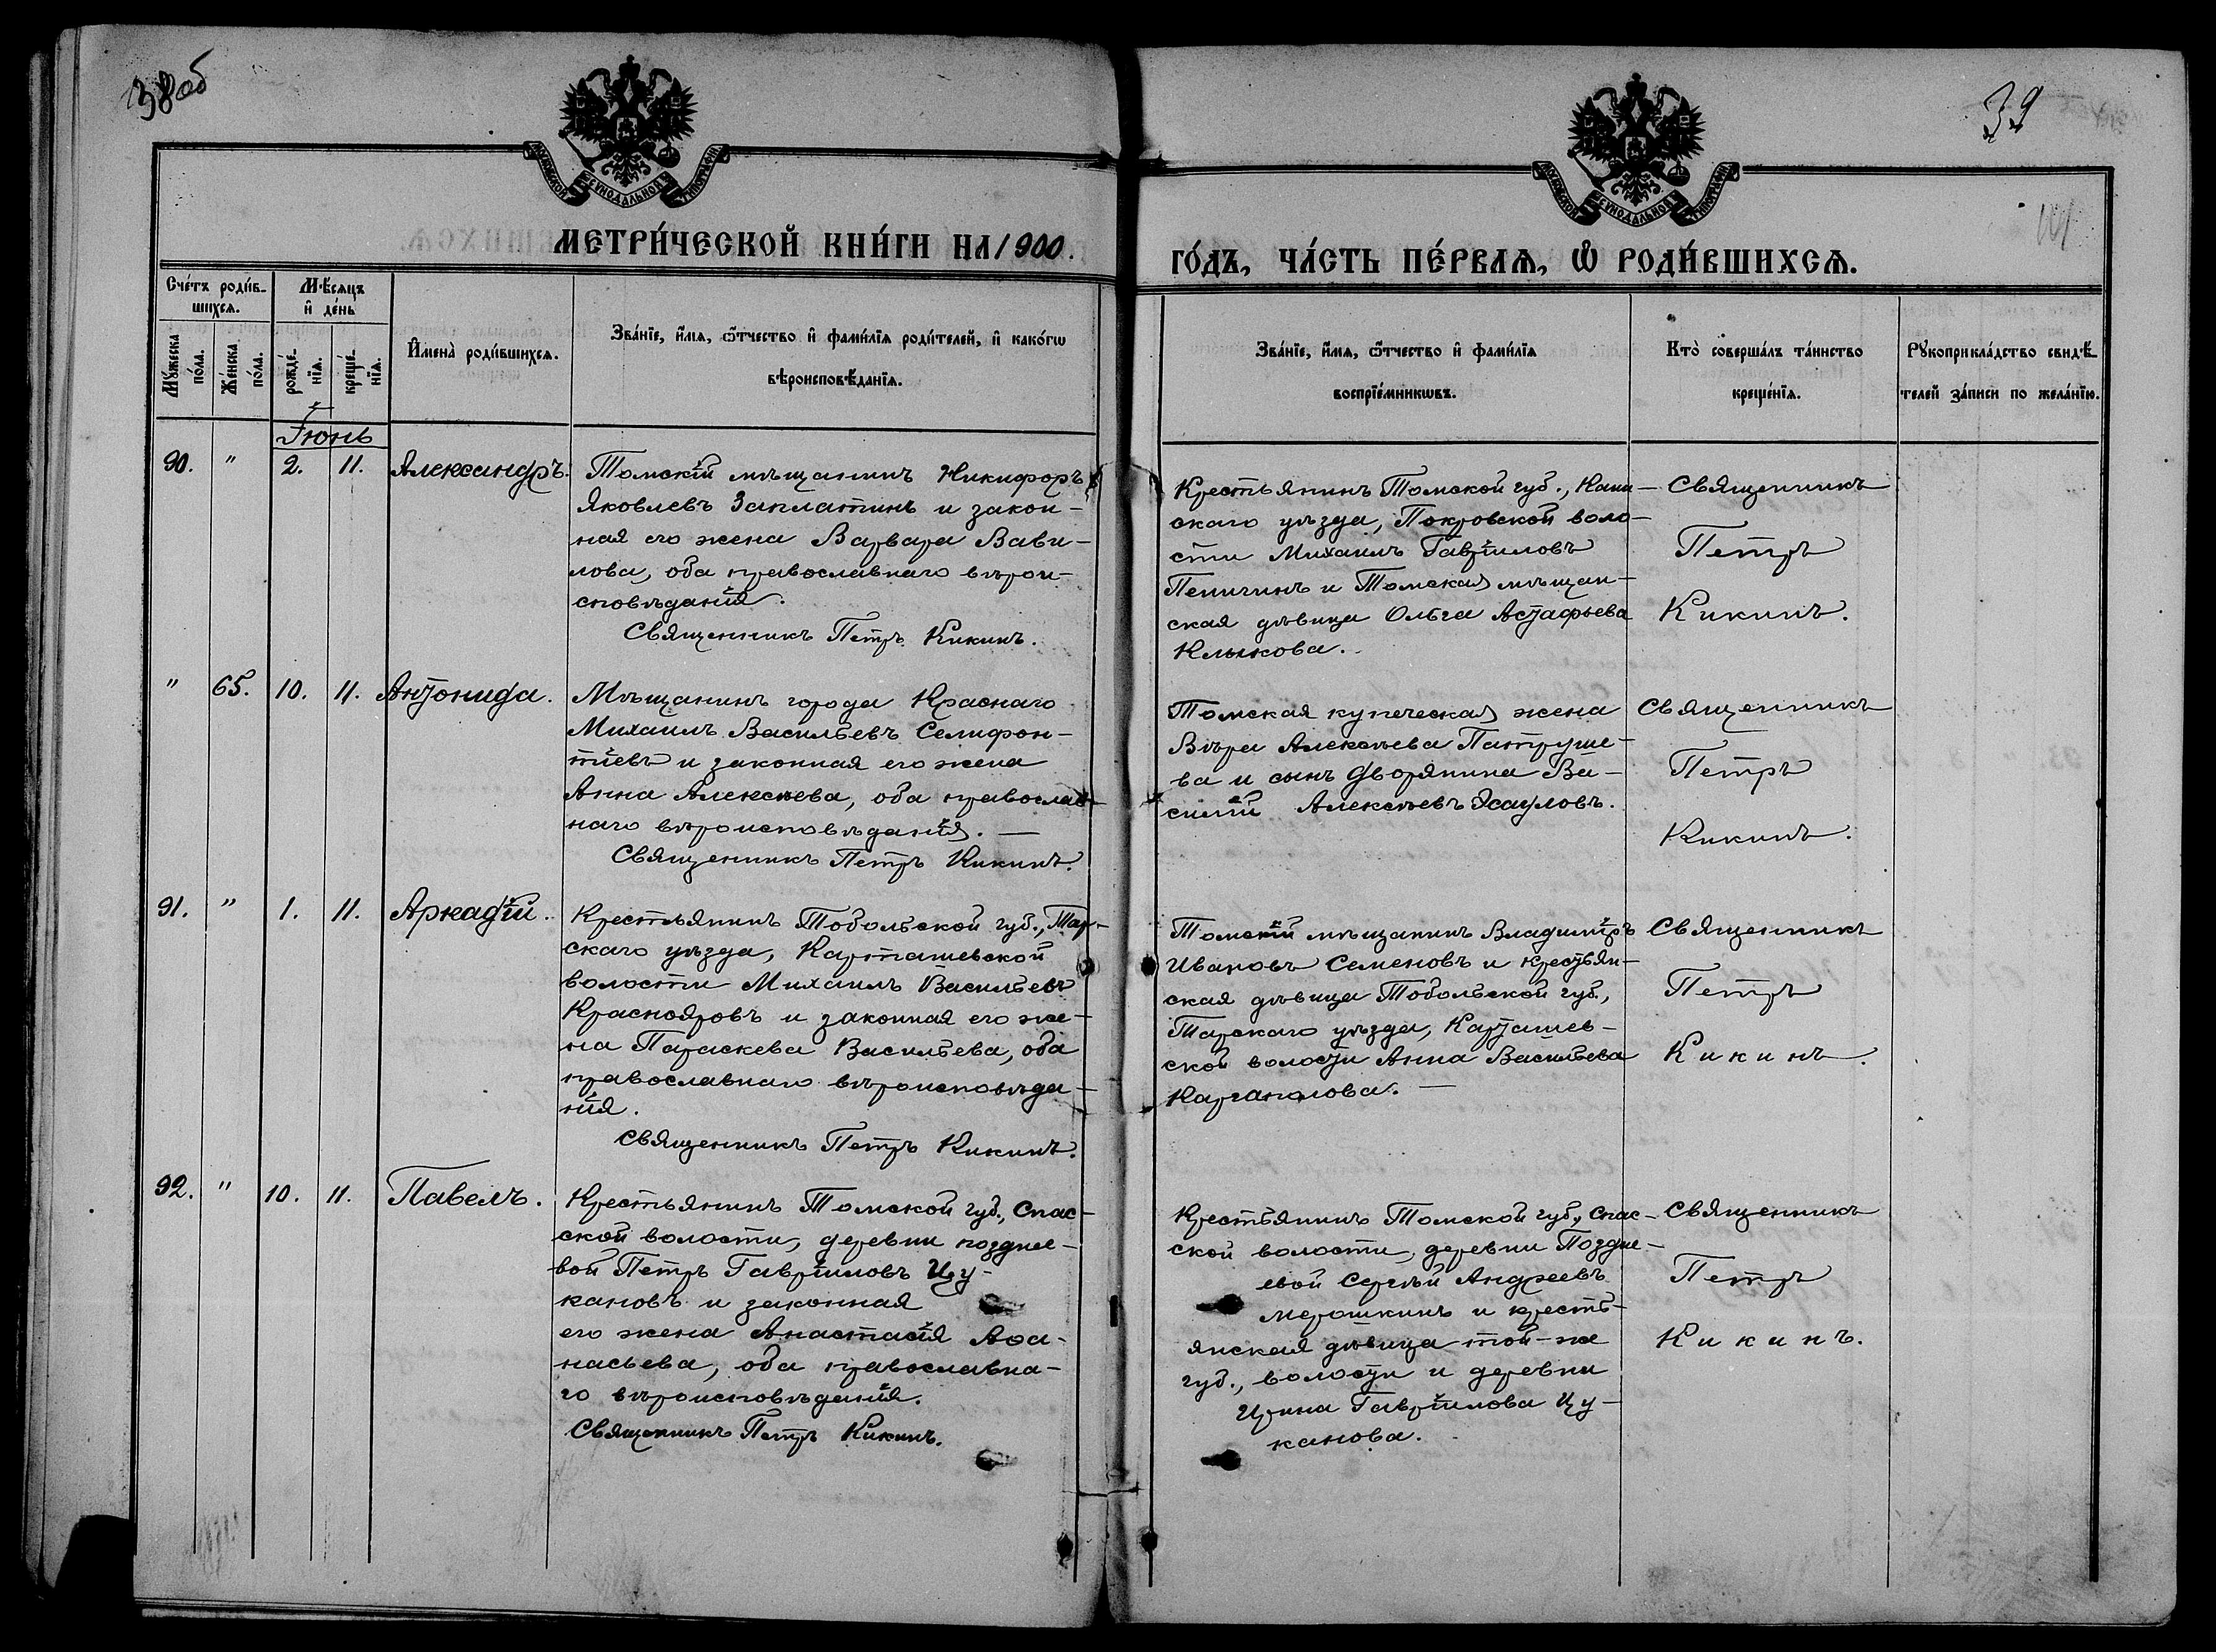 38об
39
МЕТРИ́ЧЕСКОЙ КНИ́ГИ НА 1900.
ГО́ДЪ, ЧА́СТЬ ПЕ́РВАѦ, Ѡ҆ РОДИ́ВШИХСѦ.
Сче́тъ роди́в-
шихсѧ.
Мѣ́сяцъ
и҆ де́нь
Мꙋ́жеска
по́ла.
Же́нска
по́ла.
рожде́-
нїѧ.
креще́-
нїѧ.
И҆мена̀ роди́вшихсѧ.
Зва́нїе, и҆́мѧ, ѿтчество и҆ фами́лїѧ роди́телей, и҆ како́гѡ
вѣроисповѣ́данїѧ.
Зва́нїе, и҆́мѧ, ѿтчество и҆ фами́лїѧ
воспрїе́мникѡвъ.
Кто̀ соверша́лъ та́инство
креще́нїѧ.
Рꙋкоприкла́дство свидѣ́-
телей за́писи по жела́нїю.
Іюнь
90. " 2. 11. Александръ.
Томскій мѣщанинъ Никифоръ
Яковлевъ Заплатинъ и закон-
ная его жена Варвара Вави-
лова, оба православнаго вѣрои-
сповѣданія.
Священникъ Петръ Кикинъ.
Крестьянинъ Томской губ., Каин-
скаго уѣзда, Покровской воло-
сти Михаилъ Гавріиловъ
Пеничинъ и Томская мѣщан-
ская дѣвица Ольга Астафьева
Клыкова.
Священникъ
Петръ
Кикинъ.
" 65. 10. 11. Антонида.
Мѣщанинъ города Краснаго
Михаилъ Васильевъ Селифон-
тіевъ и законная его жена
Анна Алексѣева, оба православ-
наго вѣроисповѣданія. —
Священникъ Петръ Кикинъ.
Томская купеческая жена
Вѣра Алексѣева Патруше-
ва и сынъ дворянина Ва-
силій Алексѣевъ Ясауловъ.
Священникъ
Петръ
Кикинъ.
91. " 1. 11. Аркадій.
Крестьянинъ Тобольской губ., Тар-
скаго уѣзда, Карташевской
волости Михаилъ Васильевъ
Краснояровъ и законная его же-
на Параскева Васильева, оба
православнаго вѣроисповѣда-
нія.
Священникъ Петръ Кикинъ.
Томскій мѣщанинъ Владиміръ
Ивановъ Семеновъ и крестьян-
ская дѣвица Тобольской губ.,
Тарскаго уѣзда, Карташев-
ской волости Анна Васильева
Карганолова. —
Священникъ
Петръ
Кикинъ.
92. " 10. 11. Павелъ.
Крестьянинъ Томской губ., Спас-
ской волости, деревни поздне-
вой Петръ Гавріиловъ Цу-
кановъ и законная
его жена Анастасія Аѳа-
насьева, оба православна-
го вѣроисповѣданія.
Священникъ Петръ Кикинъ.
Крестьянинъ Томской губ., Спас-
ской волости, деревни Поздне-
евой Сергѣй Андреевъ
Мерошкинъ и кресть-
янская дѣвица той-же
губ., волости и деревни
Ирина Гавріилова Цу-
канова.
Священникъ
Петръ
Кикинъ.